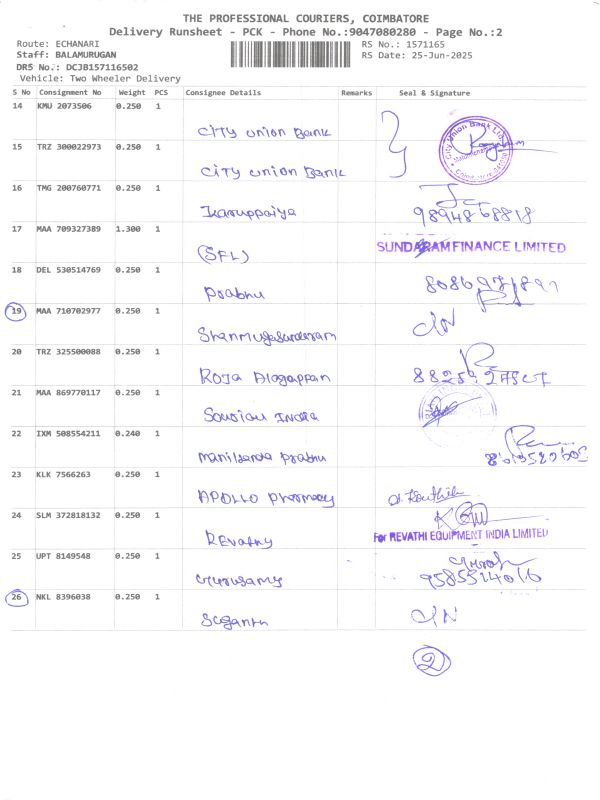 THE PROFESSIONAL COURIERS, COIMBATORE
Delivery Runsheet - PCK - Phone No.:9047080280 - Page No.:2
Route: ECHANARI
RS No.: 1571165
Staff: BALAMURUGAN
RS Date: 25-Jun-2025
DRS No.: DCJB157116502
Vehicle: Two Wheeler Delivery
S No Consignment No Weight PCS Consignee Details Remarks Seal & Signature
14 KMU 2073506 0.250 1
City Union Bank
15 TRZ 300022973 0.250 1
City Union Bank
City Union Bank Ltd
16 TMG 200760771 0.250 1
Karuppaiya
9894868818
17 MAA 709327389 1.300 1
(SFL)
SUNDARAM FINANCE LIMITED
18 DEL 530514769 0.250 1
Prabhu
19 MAA 710702977 0.250 1
Shanmugasundaram
C/N
20 TRZ 325500088 0.250 1
Roja Alagappan
21 MAA 869770117 0.250 1
22 IXM 508554211 0.240 1
Manikanda Prabhu
23 KLK 7566263 0.250 1
APOLLO Pharmacy
24 SLM 372818132 0.250 1
Revathy
For REVATHI EQUIPMENT INDIA LIMITED
25 UPT 8149548 0.250 1
Gurusamy
9585514016
26 NKL 8396038 0.250 1
C/N
2